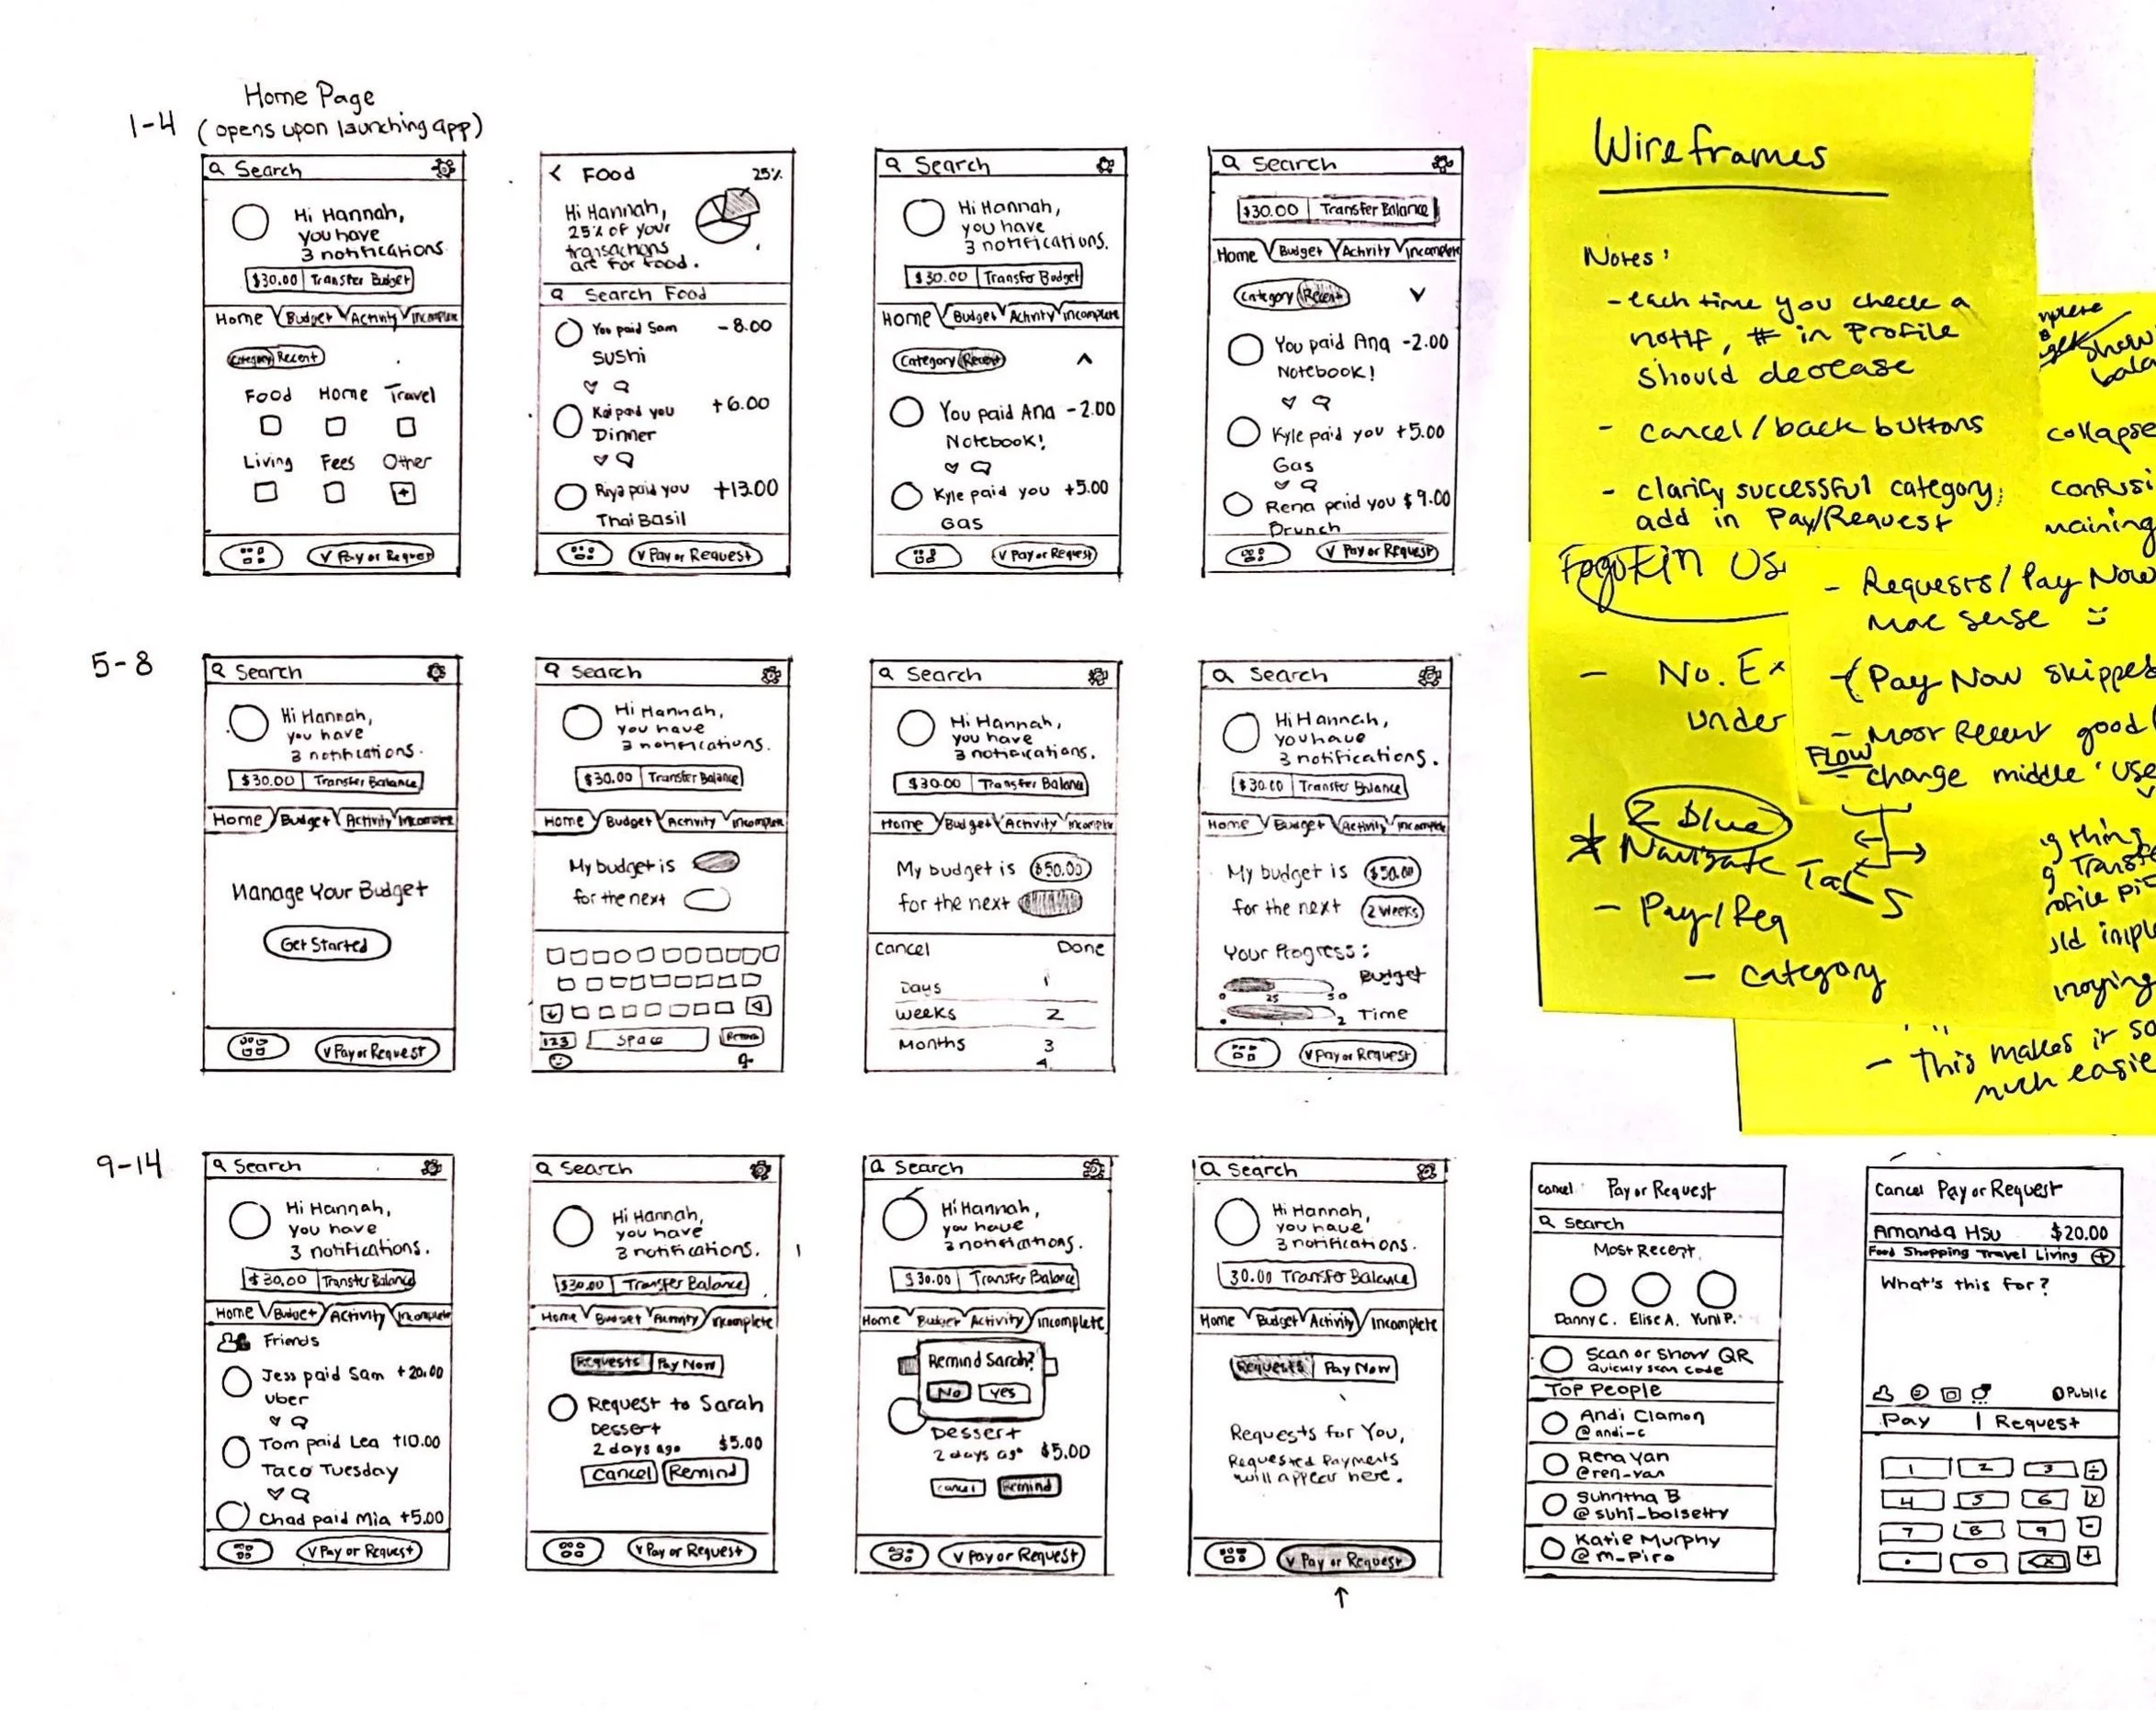 Home Page
1-4 (opens upon launching app)
Search
Hi Hannah,
you have
3 notifications
$30.00 Transfer Budget
Home Budget Activity Incomplete
Category Recent
Food Home Travel
Living Fees Other
+
V Pay or Request
< Food 25%
Hi Hannah,
25% of your
transactions
are for food.
Search Food
You paid Sam -8.00
Sushi
Kai paid you +6.00
Dinner
Riya paid you +13.00
Thai Basil
V Pay or Request
Search
Hi Hannah,
you have
3 notifications.
$30.00 Transfer Budget
Home Budget Activity Incomplete
Category Recent ^
You paid Ana -2.00
Notebook!
Kyle paid you +5.00
Gas
V Pay or Request
Search
$30.00 Transfer Balance
Home Budget Activity Incomplete
Category Recent v
You paid Ana -2.00
Notebook!
Kyle paid you +5.00
Gas
Rena paid you $9.00
Brunch
V Pay or Request
5-8
Search
Hi Hannah,
you have
3 notifications.
$30.00 Transfer Balance
Home Budget Activity Incomplete
Manage Your Budget
Get Started
V Pay or Request
Search
Hi Hannah,
you have
3 notifications.
$30.00 Transfer Balance
Home Budget Activity Incomplete
My budget is
for the next
123 Space Return
Search
Hi Hannah,
you have
3 notifications.
$30.00 Transfer Balance
Home Budget Activity Incomplete
My budget is $50.00
for the next
Cancel Done
Days 1
Weeks 2
Months 3
4
Search
Hi Hannah,
you have
3 notifications.
$30.00 Transfer Balance
Home Budget Activity Incomplete
My budget is $50.00
for the next 2 weeks
Your Progress:
Budget
0 25 50
Time
2
V Pay or Request
9-14
Search
Hi Hannah,
you have
3 notifications.
$30.00 Transfer Balance
Home Budget Activity Incomplete
Friends
Jess paid Sam +20.00
Uber
Tom paid Lea +10.00
Taco Tuesday
Chad paid Mia +5.00
V Pay or Request
Search
Hi Hannah,
you have
3 notifications.
$30.00 Transfer Balance
Home Budget Activity Incomplete
Requests Pay Now
Request to Sarah
Dessert
2 days ago $5.00
Cancel Remind
V Pay or Request
Search
Hi Hannah,
you have
3 notifications.
$30.00 Transfer Balance
Home Budget Activity Incomplete
Remind Sarah?
No Yes
Dessert
2 days ago $5.00
Cancel Remind
V Pay or Request
Search
Hi Hannah,
you have
3 notifications.
30.00 Transfer Balance
Home Budget Activity Incomplete
Requests Pay Now
Requests for You,
Requested Payments
will appear here.
V Pay or Request
Cancel Pay or Request
Search
Most Recent
Danny C. Elise A. Yuni P.
Scan or Show QR
Quickly scan code
Top People
Andi Clamon
@andi-c
Rena Yan
@ren-yan
Sunritha B
@suhi_bolsetty
Katie Murphy
@m_piro
Cancel Pay or Request
Amanda Hsu $20.00
Food Shopping Travel Living +
What's this for?
Public
Pay | Request
1 2 3 ÷
4 5 6 x
7 8 9 -
. 0 x +
Wireframes
Notes:
- each time you check a
notif, # in Profile
should decrease
- cancel/back buttons
- clarify successful category,
add in Pay/Request
- No. Ex
under
2 Blue
* Navigate Tabs
- Pay/Req
- category
- Requests/Pay Now
- (Pay Now skipped
- Most Recent good
Flow
- change middle 'use
show
collapse
- This makes it so
much easie